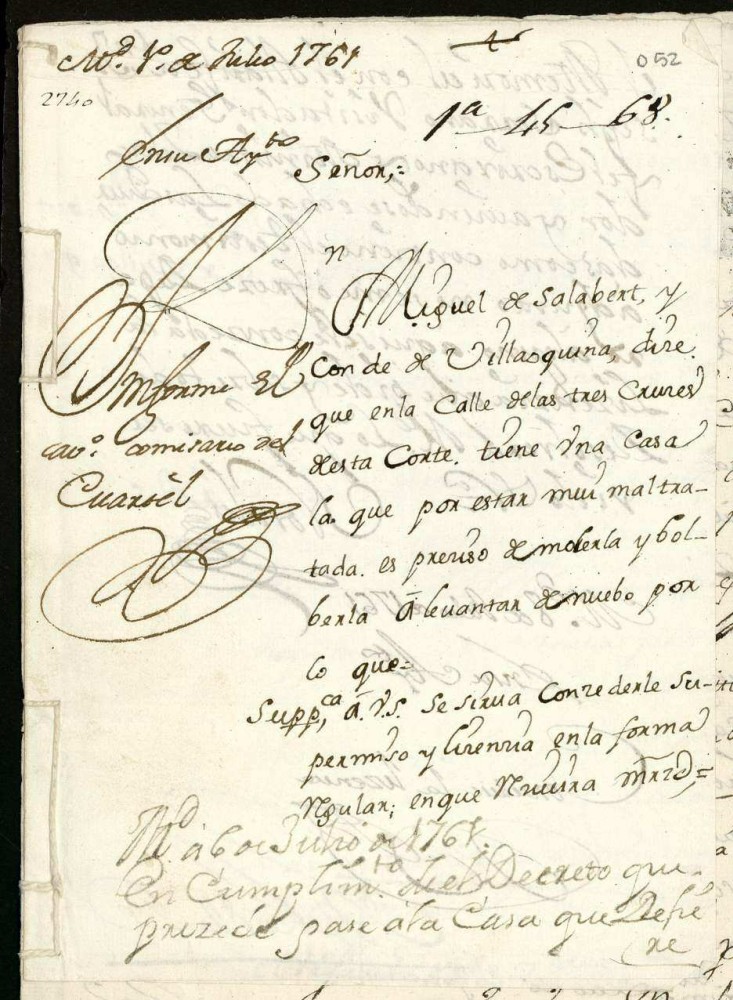 Md. 1º. de Julio 1761
052
2740
1ª 45 68.
En su Aytto
Señor,=
Dn Miguel de Salabert, y
Conde de Villaoquina, dize
que en la Calle de las tres Cruzes
desta Corte. tiene Vna Casa
la que por estar mui maltra-
tada. es preziso demolerla y bol-
berla â levantar de nuebo por
lo que=
Suppca. â. V.S. se sirva Conzederle su
permiso y lizenzia en la forma
Rgular; en que Rzivira mrzd,=
Informe El
cavo. comisario del
Cuartèl
Md. a 6 de Julio de 1761.
En Cumplimto. del Decreto que
prezede pase a la Casa que Refie
re